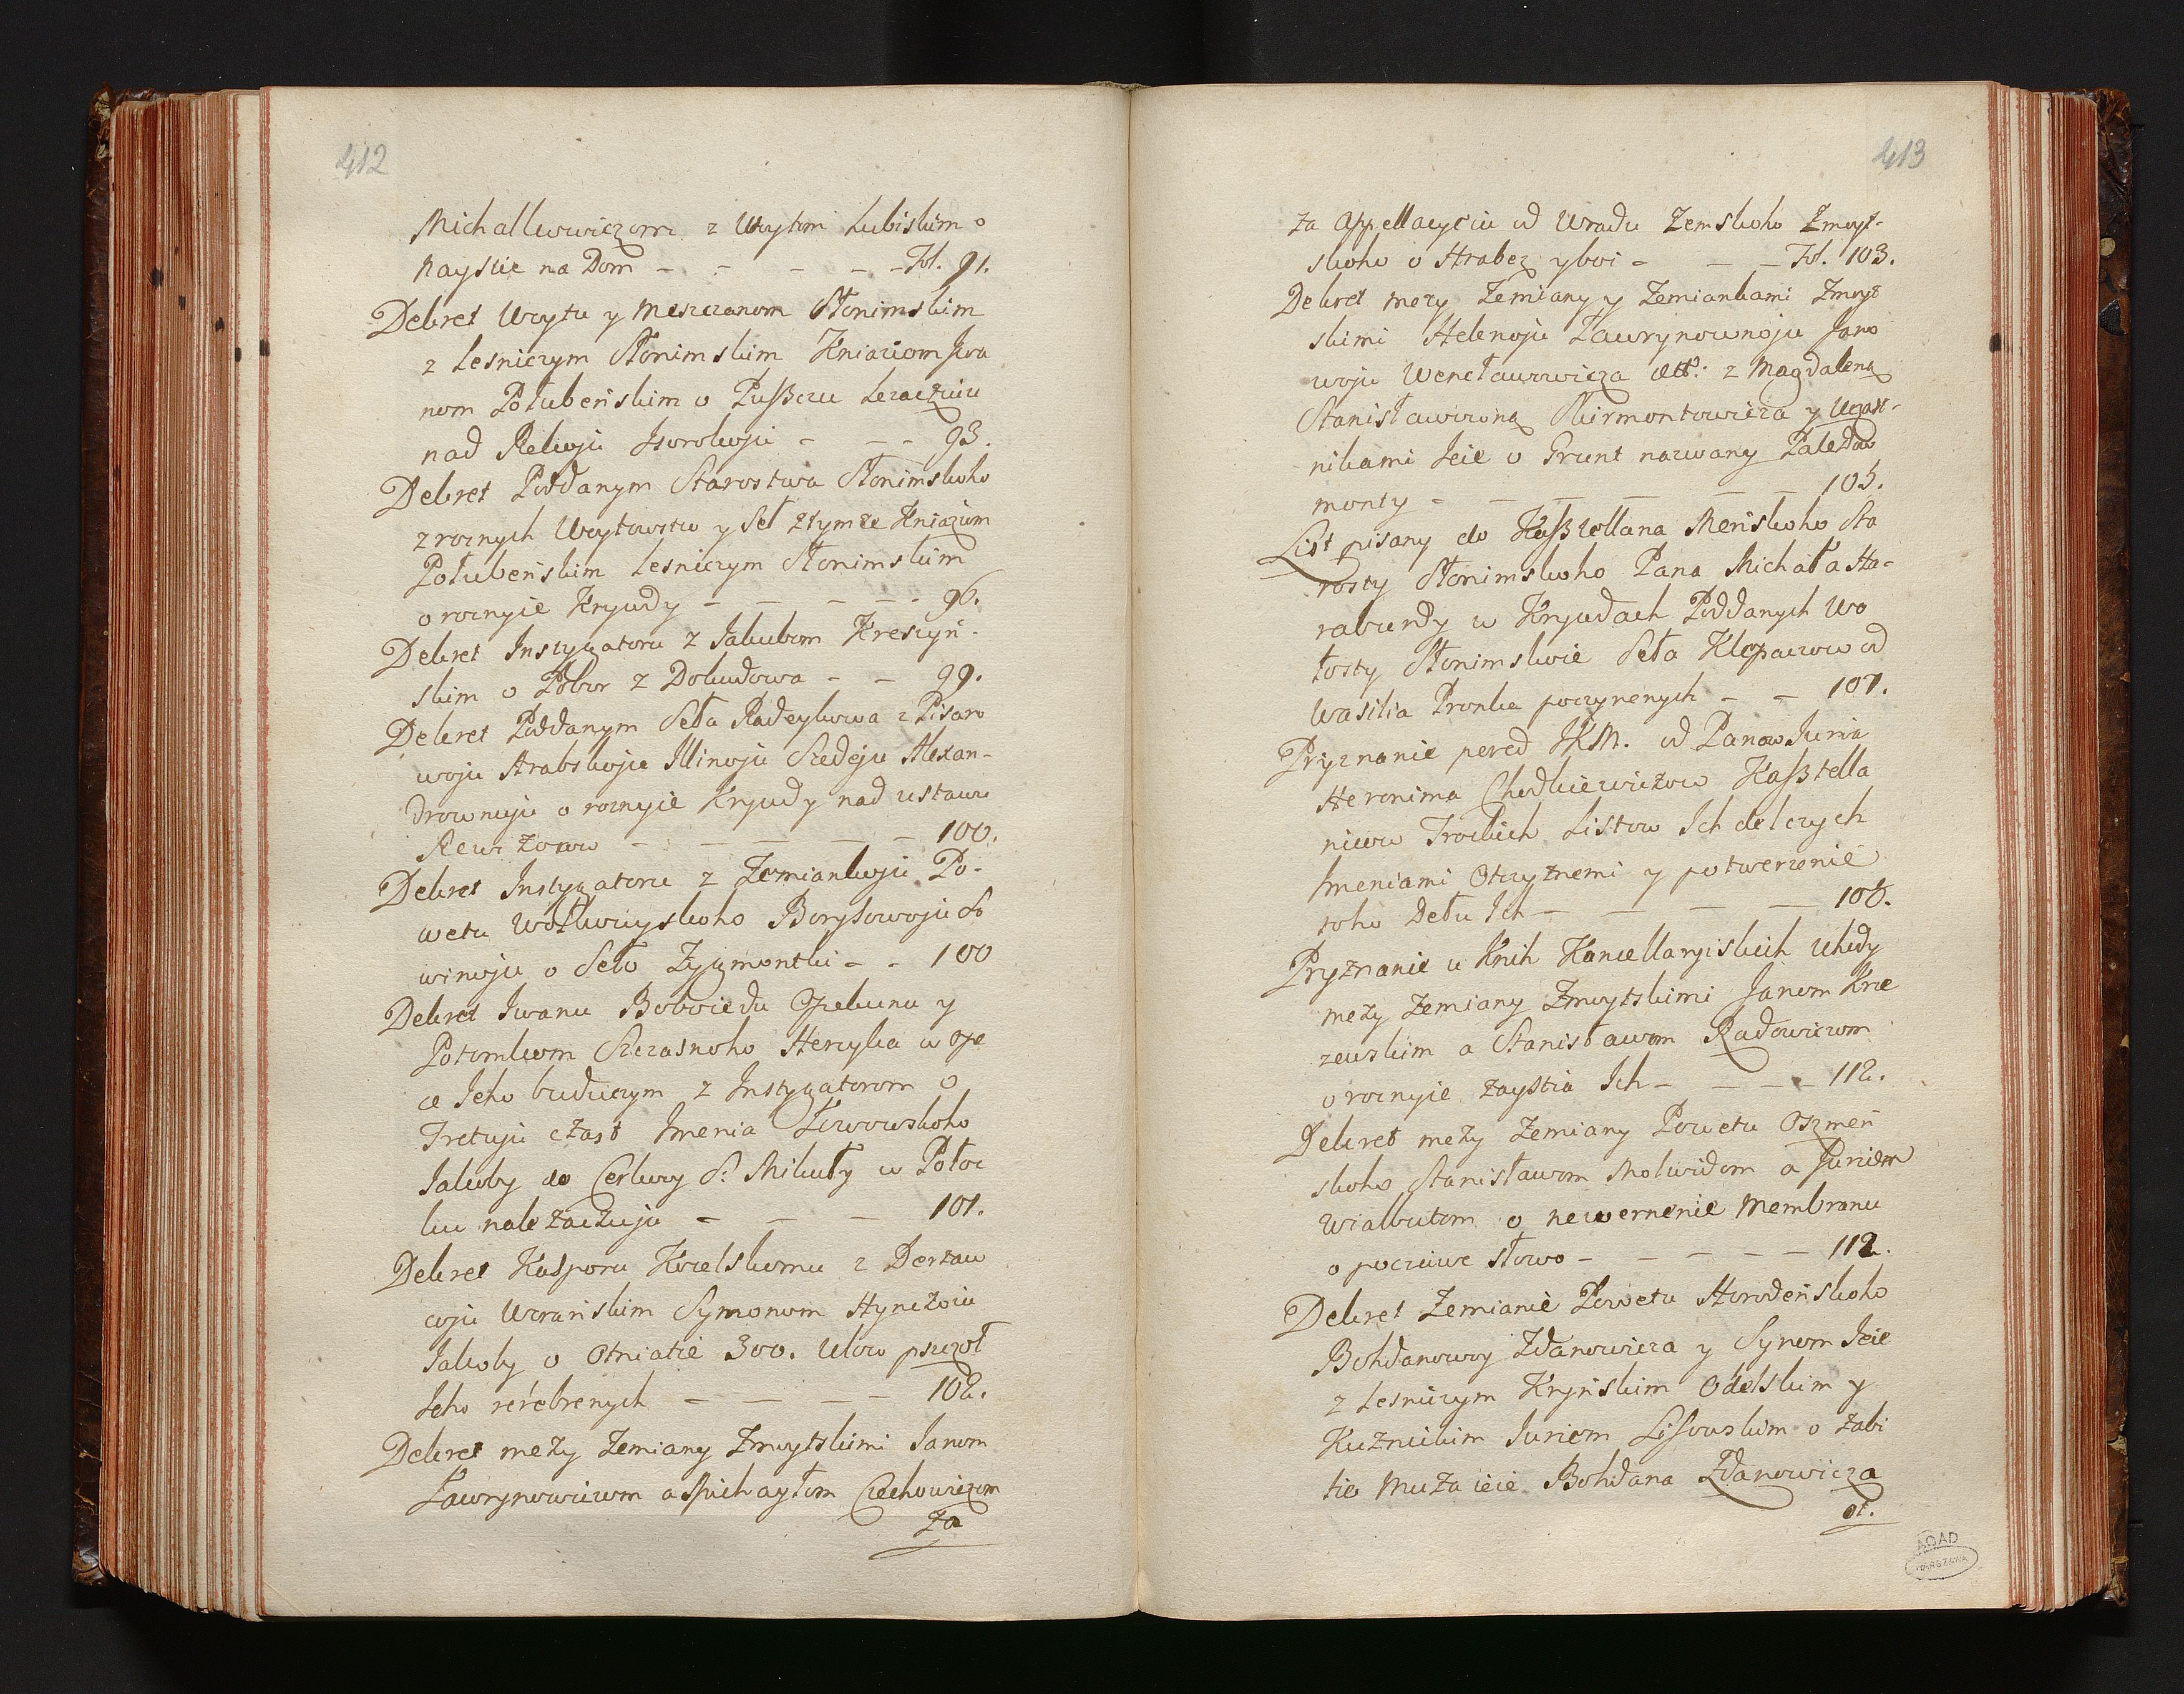 412
Michallowiczom z Woytom Lubiskim o
nayście na Dom - - - - - Fol. 91.
Dekret Woytu y Meszczanom Słonimskim
z Lesniczym Słonimskim Kniaziom Iwa
nom Połubeńskim o Pußczu Lezaczuiu
nad Rekoju Isorokoju - - - 93.
Dekret Poddanym Starostwa Słonimskoho
z roznych Woytowstw y Seł z tym że Kniazem
Połubeńskim Lesniczym Słonimskim
o roznyie Krywdy - - - - - 96.
Dekret Instygatoru z Jakubom Kreszyń-
skim o Pobor z Dokudowa - - 99.
Dekret Poddanym Seła Radeykowa z Pisaro
woju Hrabskoju Illinoju Sredeju Alexan-
drownoju o roznyie Krywdy nad ustawu
Rewizorow - - - - - 100.
Dekret Instygatoru z Zemiankoju Po-
wetu Wołkowyskoho Borysowoju So
winoju o Seło Zygmontki - - 100
Dekret Iwanu Boboiedu Opekunu y
Potomkom Szczasnoho Hercyka w Ope
ce Jeho buduczym z Instygatorom o
Tretuju czast Imenia
Jakoby do Cerkwy S: Mikuły w Połoc
ku nalezaczuju - - - 101.
Dekret Kasporu Kozelskomu z Derzaw
coju Uzrańskim Symonom Hynczoiu
Jakoby o Otniatie 300. Ulow pszczoł
Jeho - - - - 102.
Dekret mezy Zemiany Zmoytskimi Janom
Ławrynowiczom a Michayłom Czechowiczom
za
413
za Appellacyeiu od Uradu Zemskoho Zmoyt-
skoho o Hrabez y boi - - - Fol. 103.
Dekret mezy Zemiany y Zemiankami Zmoyt
skimi Helenoju Ławrynownoju Jano
woju Wencławowicza ett: z Magdaleną
Stanisławowną Skirmontowicza y Uczast-
nikami Jeie o Grunt nazwany Paledaw
monty - - - - - - 105.
List pisany do Kaßtellana Meńskoho Sta
rosty Słonimskoho Pana Michała Ha-
raburdy w Krywdach Poddanych Wo
łosty Słonimskoie Seła Klepaczow od
Wasilia Pronka poczynenych - - 107.
Pryznanie pered JKM. od Panow Juria
Heronima Chodkiewiczow Kaßtella
nicow Trockich Listow Ich delczych
Imeniami Otczyznemi y potwerzenie
toho Dełu Ich - - - - 108.
Pryznanie u Knih Kancellaryiskich Uhody
mezy Zemiany Zmoytskimi Janom Krze
zewskim a Stanisławom Radowiczom
o roznyie zaystia Ich - - - - 112.
Dekret mezy Zemiany Powetu Oszmeń
skoho Stanisławom Molwidom a Juriem
Wialbutom o newernenie Membranu
o poczciwe słowo - - - - - 112.
Dekret Zemianie Powetu Horodeńskoho
Bohdanowoy Zdanowicza y Synom Jeie
z Lesniczym Kryńskim Odelskim y
Kuznickim Juriem Lisowskim o zabi
tie Muza ieie Bohdana Zdanowicza
ot.
AGAD
WARSZAWA